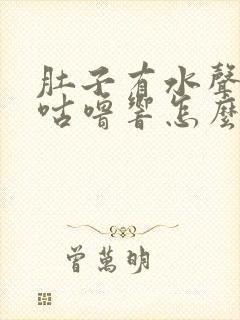 肚子有水聲
咕嚕響怎麼
曾萬明